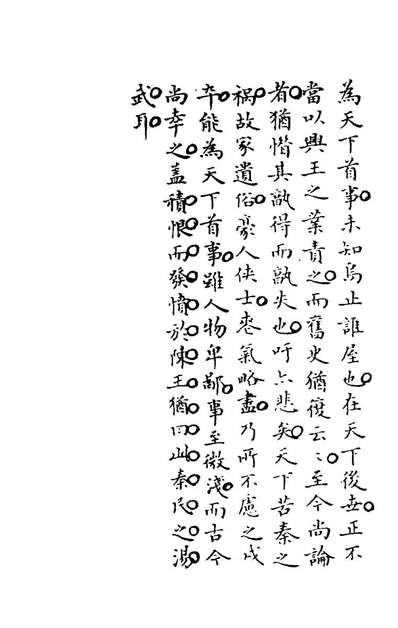 為天下首事未知烏止誰屋也在天下後世正不
當以興王之業責之而舊史猶復云〻至今尚論
者猶惜其孰得而孰失也吁亦悲矣天下苦秦之
禍故家遺俗豪人俠士喪氣略盡乃所不慮之戍
卒能為天下首事雖人物卑鄙事至微淺而古今
尚幸之蓋積恨而發憤於陳王猶曰此秦民之湯
武耶